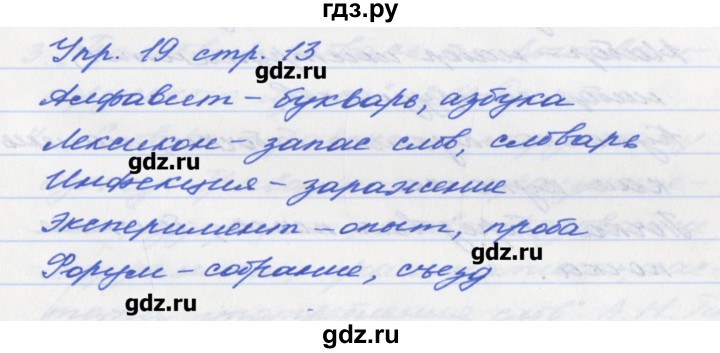 гдз.ру
Упр. 19 стр. 13
gdz.ru
Алфавит – букварь, азбука
Лексикон – запас слов, словарь
gdz.ru
Инфекция – заражение
Эксперимент – опыт, проба
gdz.ru
Форум – собрание, съезд
gdz.ru
gdz.ru